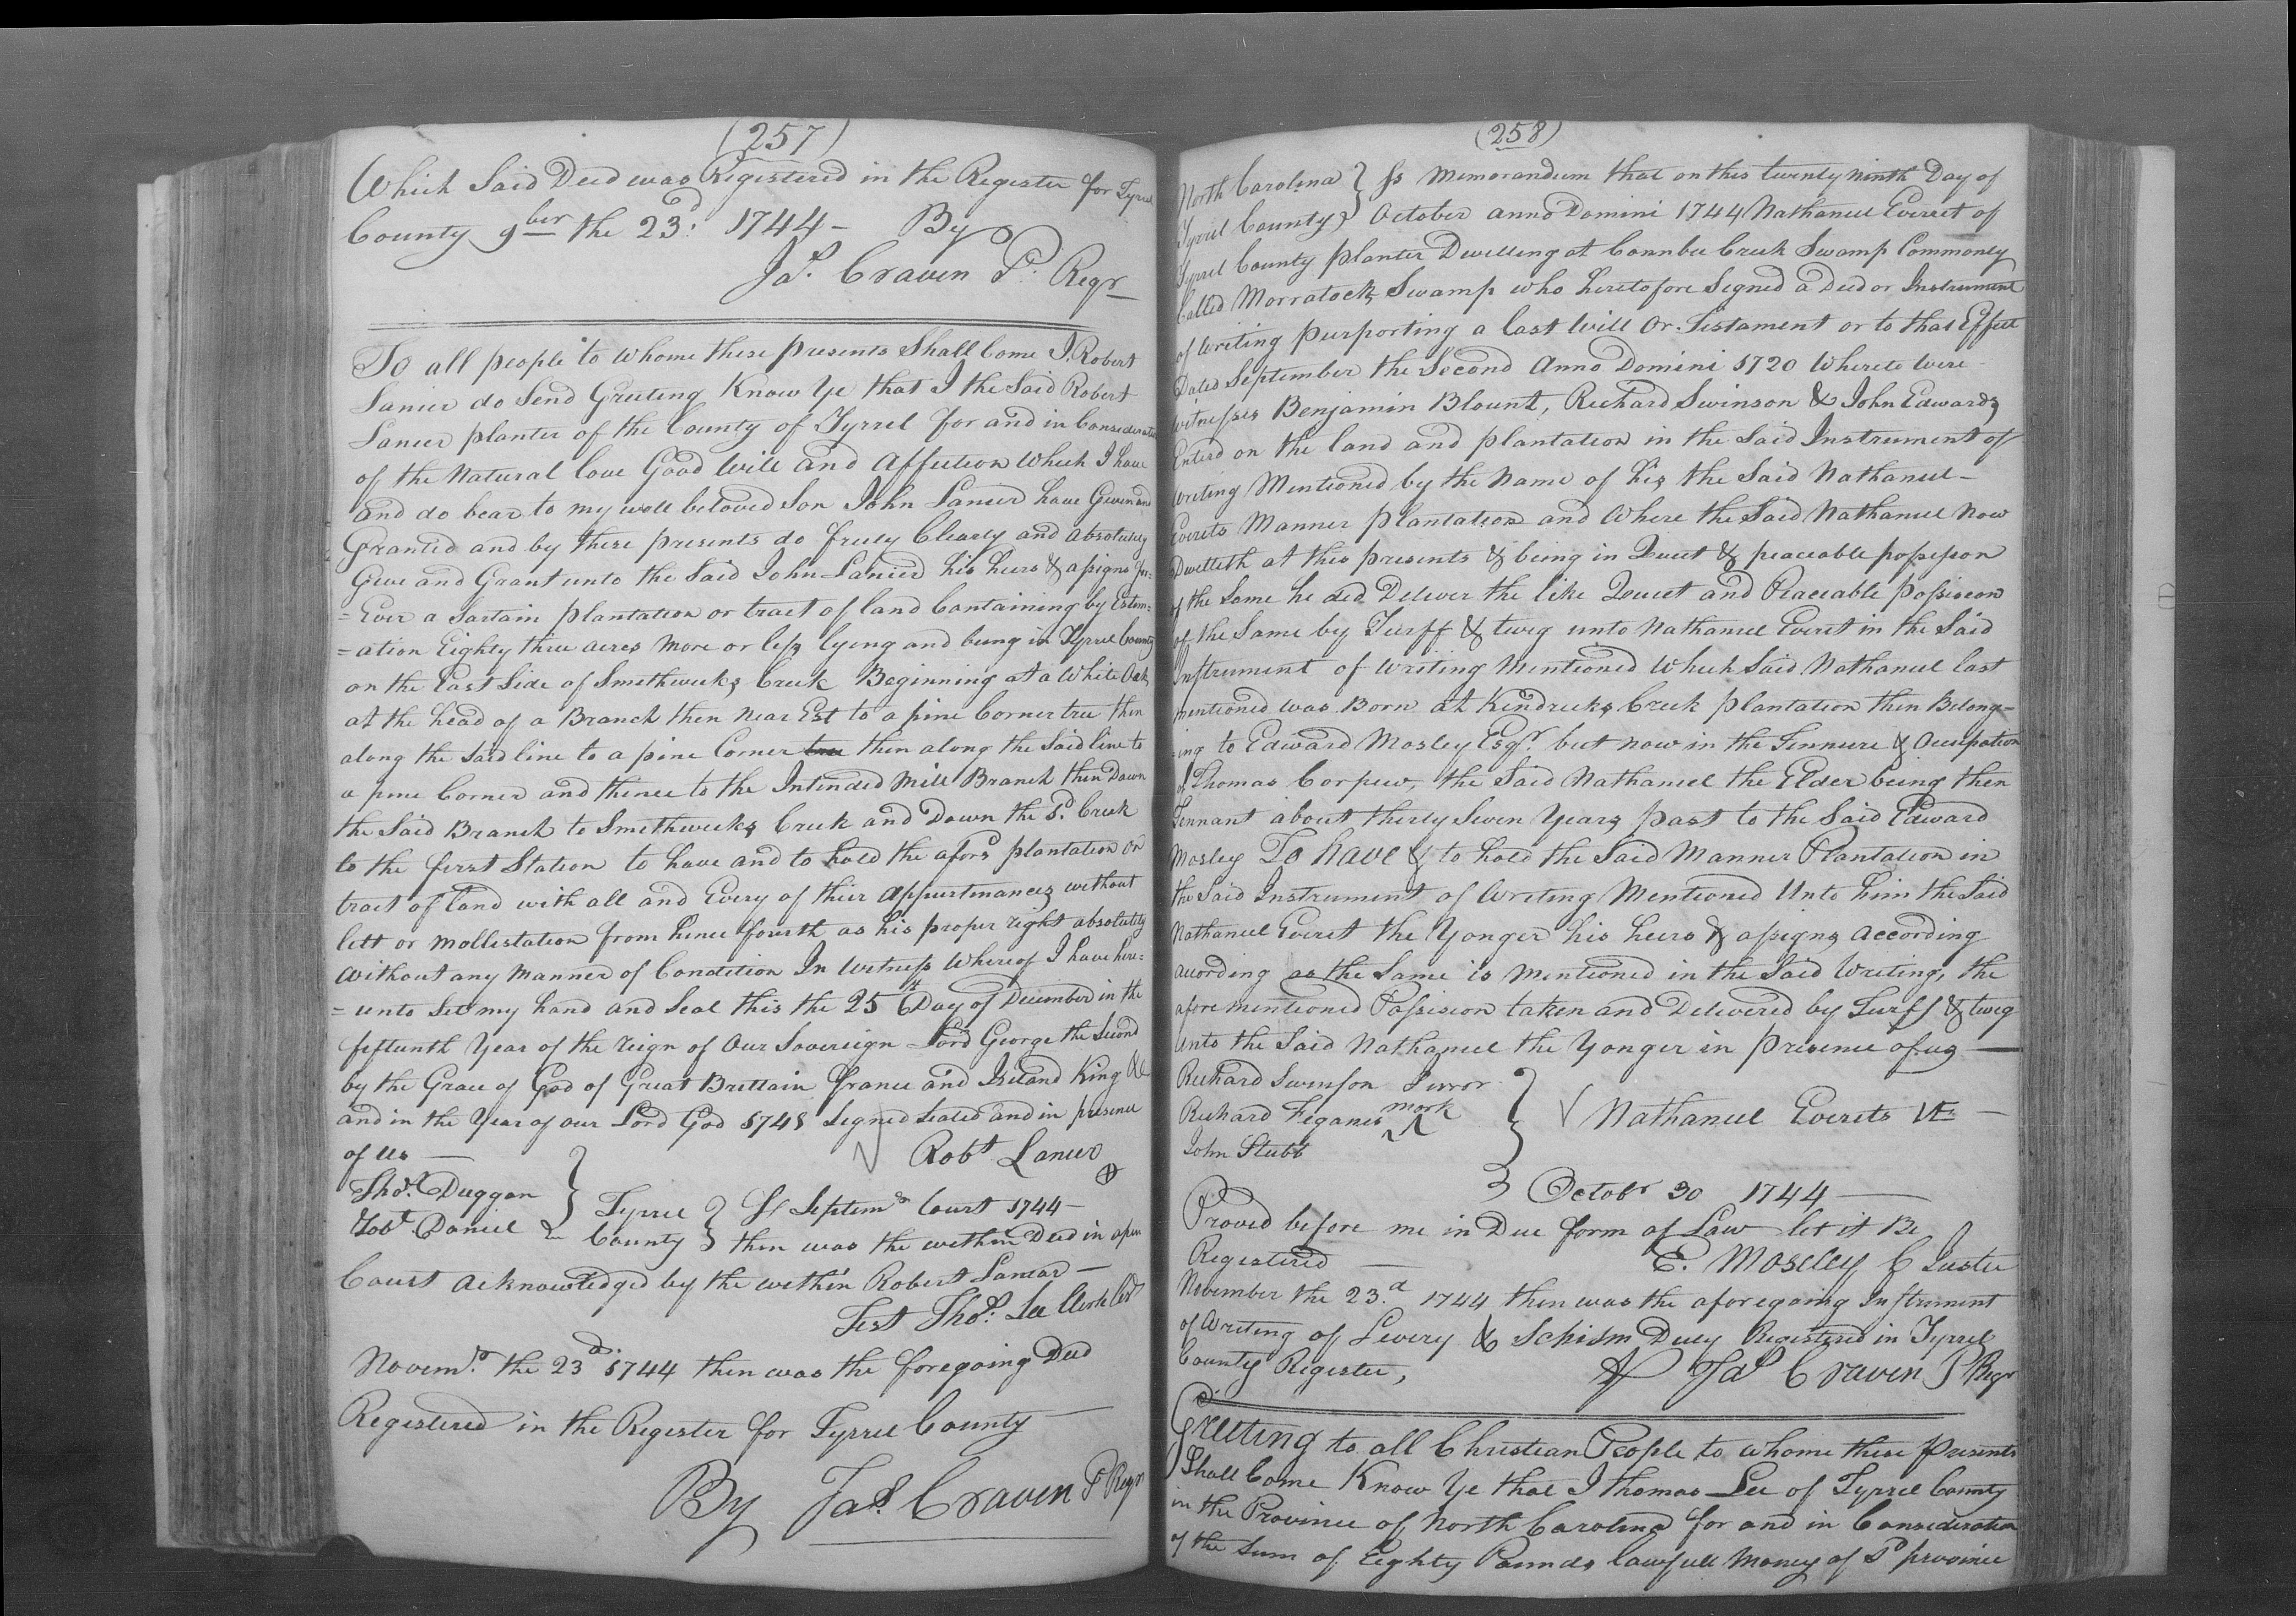 (257)
Which Said Deed was Registered in the Register for Tyrrel
County 9ber the 23d: 1744 - By
Jas. Craven P. Regr
To all people to whome these presents Shall Come I Robert
Lanier do Send Greeting Know Ye that I the Said Robert
Lanier planter of the County of Tyrrel for and in Consideration
of the Natural love Good Will and Affection which I have
and do bear to my well beloved Son John Lanier have Given and
Granted and by these presents do freely Clearly and absolutely
Give and Grant unto the Said John Lanier his heirs & assigns for=
=Ever a Sartain plantation or tract of land Containing by Estem=
=ation Eighty three acres more or less lying and being in Tyrrel County
on the East Side of Smethwicks Creek Beginning at a White Oak
at the head of a Branch then Near Est to a pine Corner tree then
along the Said line to a pine Corner tree then along the Said line to
a pine Corner and thence to the Intended Mill Branch then Down
the Said Branch to Smethwicks Creek and Down the sd. Creek
to the first Station to have and to hold the aforsd plantation or
tract of land with all and Every of their appurtinances without
lett or mollestation from hence fourth as his proper right absolutely
without any Manner of Condition In Witness Whereof I have here=
=unto Set my hand and Seal this the 25th Day of December in the
fifteenth Year of the reign of Our Sovereign Lord George the Second
by the Grace of God of Great Brittain france and Ireland King &c
and in the Year of our Lord God 1741 Signed Sealed and in presence
of us
Robt Lanier
Thos. Duggan
Robt Daniel
Tyrrel County } Ss Septemr Court 1744 -
then was the within Deed in open
Court acknowledged by the within Robert Lanear -
Test Thos. Lee Clerk Cot
Novemr. the 23d 1744 then was the foregoing Deed
Registered in the Register for Tyrrel County
By Jas. Craven P Regr
(258)
North Carolina } Ss Memorandum that on this twenty ninth Day of
Tyrrel County } October anno Domini 1744 Nathaniel Everret of
Tyrrel County planter Dwelling at Connbee Creek Swamp Commonly
Called Morratock Swamp who heretofore Signed a Deed or Instrument
of Writing purporting a last Will Or Testament or to that Effect
Dated September the Second Anno Domini 1720 Whereto were
witnesses Benjamin Blount, Richard Swinson & John Edwards
Enterd on the land and plantation in the Said Instrument of
Writing Mentioned by the Name of his the Said Nathaniel -
Everets Manner plantation and Where the Said Nathaniel Now
Dwelleth at this presents & being in Quiet & peaceable possesson
of the Same he did Deliver the like Quiet and Peaceable possision
of the Same by Turff & twig unto Nathaniel Everit in the Said
Instrument of writing Mentioned Which Said Nathaniel last
mentioned was Born at Kindricks Creek plantation then Belong=
=ing to Edward Mosley Esqr. but now in the Tennure & Occupation
of Thomas Corpew, the Said Nathaniel the Elder being then
Tennant about thirty Seven Years past to the Said Edward
Mosley To have & to hold the Said Manner Plantation in
the Said Instrument of Writing Mentioned Unto him the Said
Nathaniel Everet the Yonger his heirs & assigns according
acording as the Same is Mentioned in the Said Writing, the
afore mentioned Possision taken and Delivered by Turff & twig
Unto the Said Nathaniel the Yonger in presence of us
Richard Swinson Junor
Richard Feganes mark
John Stubb
Nathaniel Everets
Octobr 30 1744
Proved before me in Due form of Law let it Be
Registered
E. Moseley C Juste
November the 23.d 1744 then was the aforegoing Instrument
of Writing of Levery & Schism Duly Registered in Tyrrel
County Register,
Jas Craven P Regr
Greeting to all Christian People to whome these presents
Shall Come Know Ye that I Thomas Lee of Tyrrel County
in the Province of North Carolina for and in Consideration
of the Sum of Eighty Pounds lawfull Money of sd province